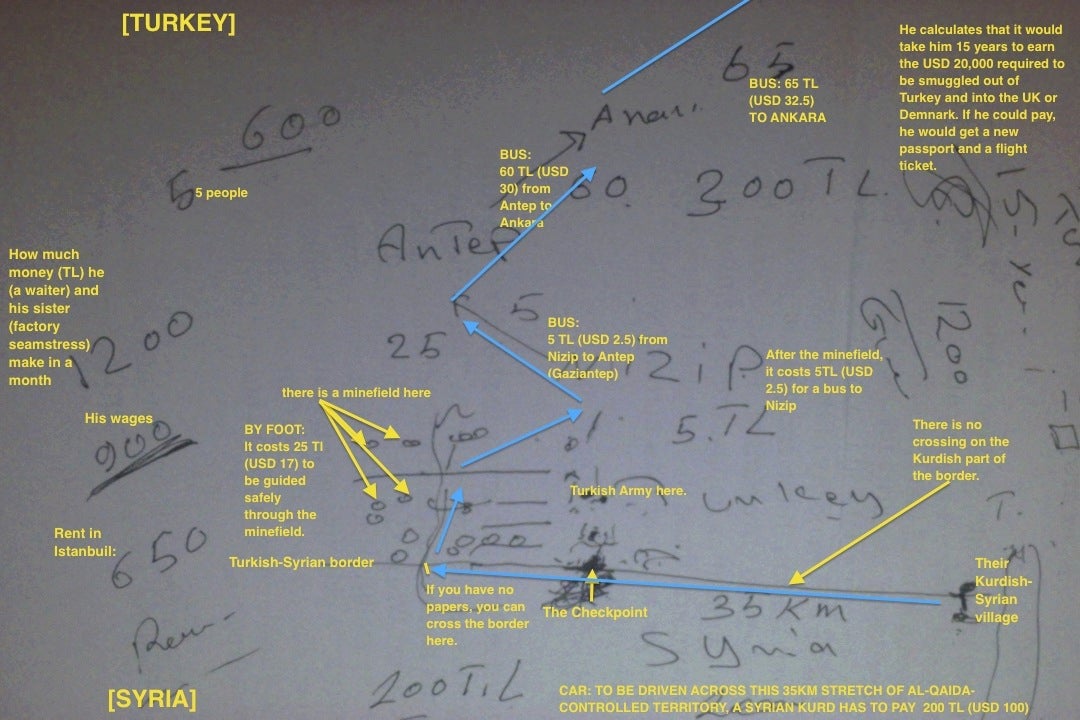 [TURKEY]
He calculates that it would
take him 15 years to earn
the USD 20,000 required to
be smuggled out of
Turkey and into the UK or
Demnark. If he could pay,
he would get a new
passport and a flight
ticket.
65
BUS: 65 TL
(USD 32.5)
TO ANKARA
600
5
5 people
BUS:
60 TL (USD
30) from
Antep to
Ankara
60.
300 TL.
15-
AnTep
How much
money (TL) he
(a waiter) and
his sister
(factory
seamstress)
make in a
month
1200
5
25
BUS:
5 TL (USD 2.5) from
Nizip to Antep
(Gaziantep)
Zip
After the minefield,
it costs 5TL (USD
2.5) for a bus to
Nizip
1200
there is a minefield here
His wages
900
BY FOOT:
It costs 25 Tl
(USD 17) to
be guided
safely
through the
minefield.
5.TL
There is no
crossing on the
Kurdish part of
the border.
Turkish Army here.
Rent in
Istanbuil:
650
Turkish-Syrian border
If you have no
papers, you can
cross the border
here.
The Checkpoint
35 Km
Syria
Their
Kurdish-
Syrian
village
[SYRIA]
200 TiL
CAR: TO BE DRIVEN ACROSS THIS 35KM STRETCH OF AL-QAIDA-
CONTROLLED TERRITORY, A SYRIAN KURD HAS TO PAY 200 TL (USD 100)